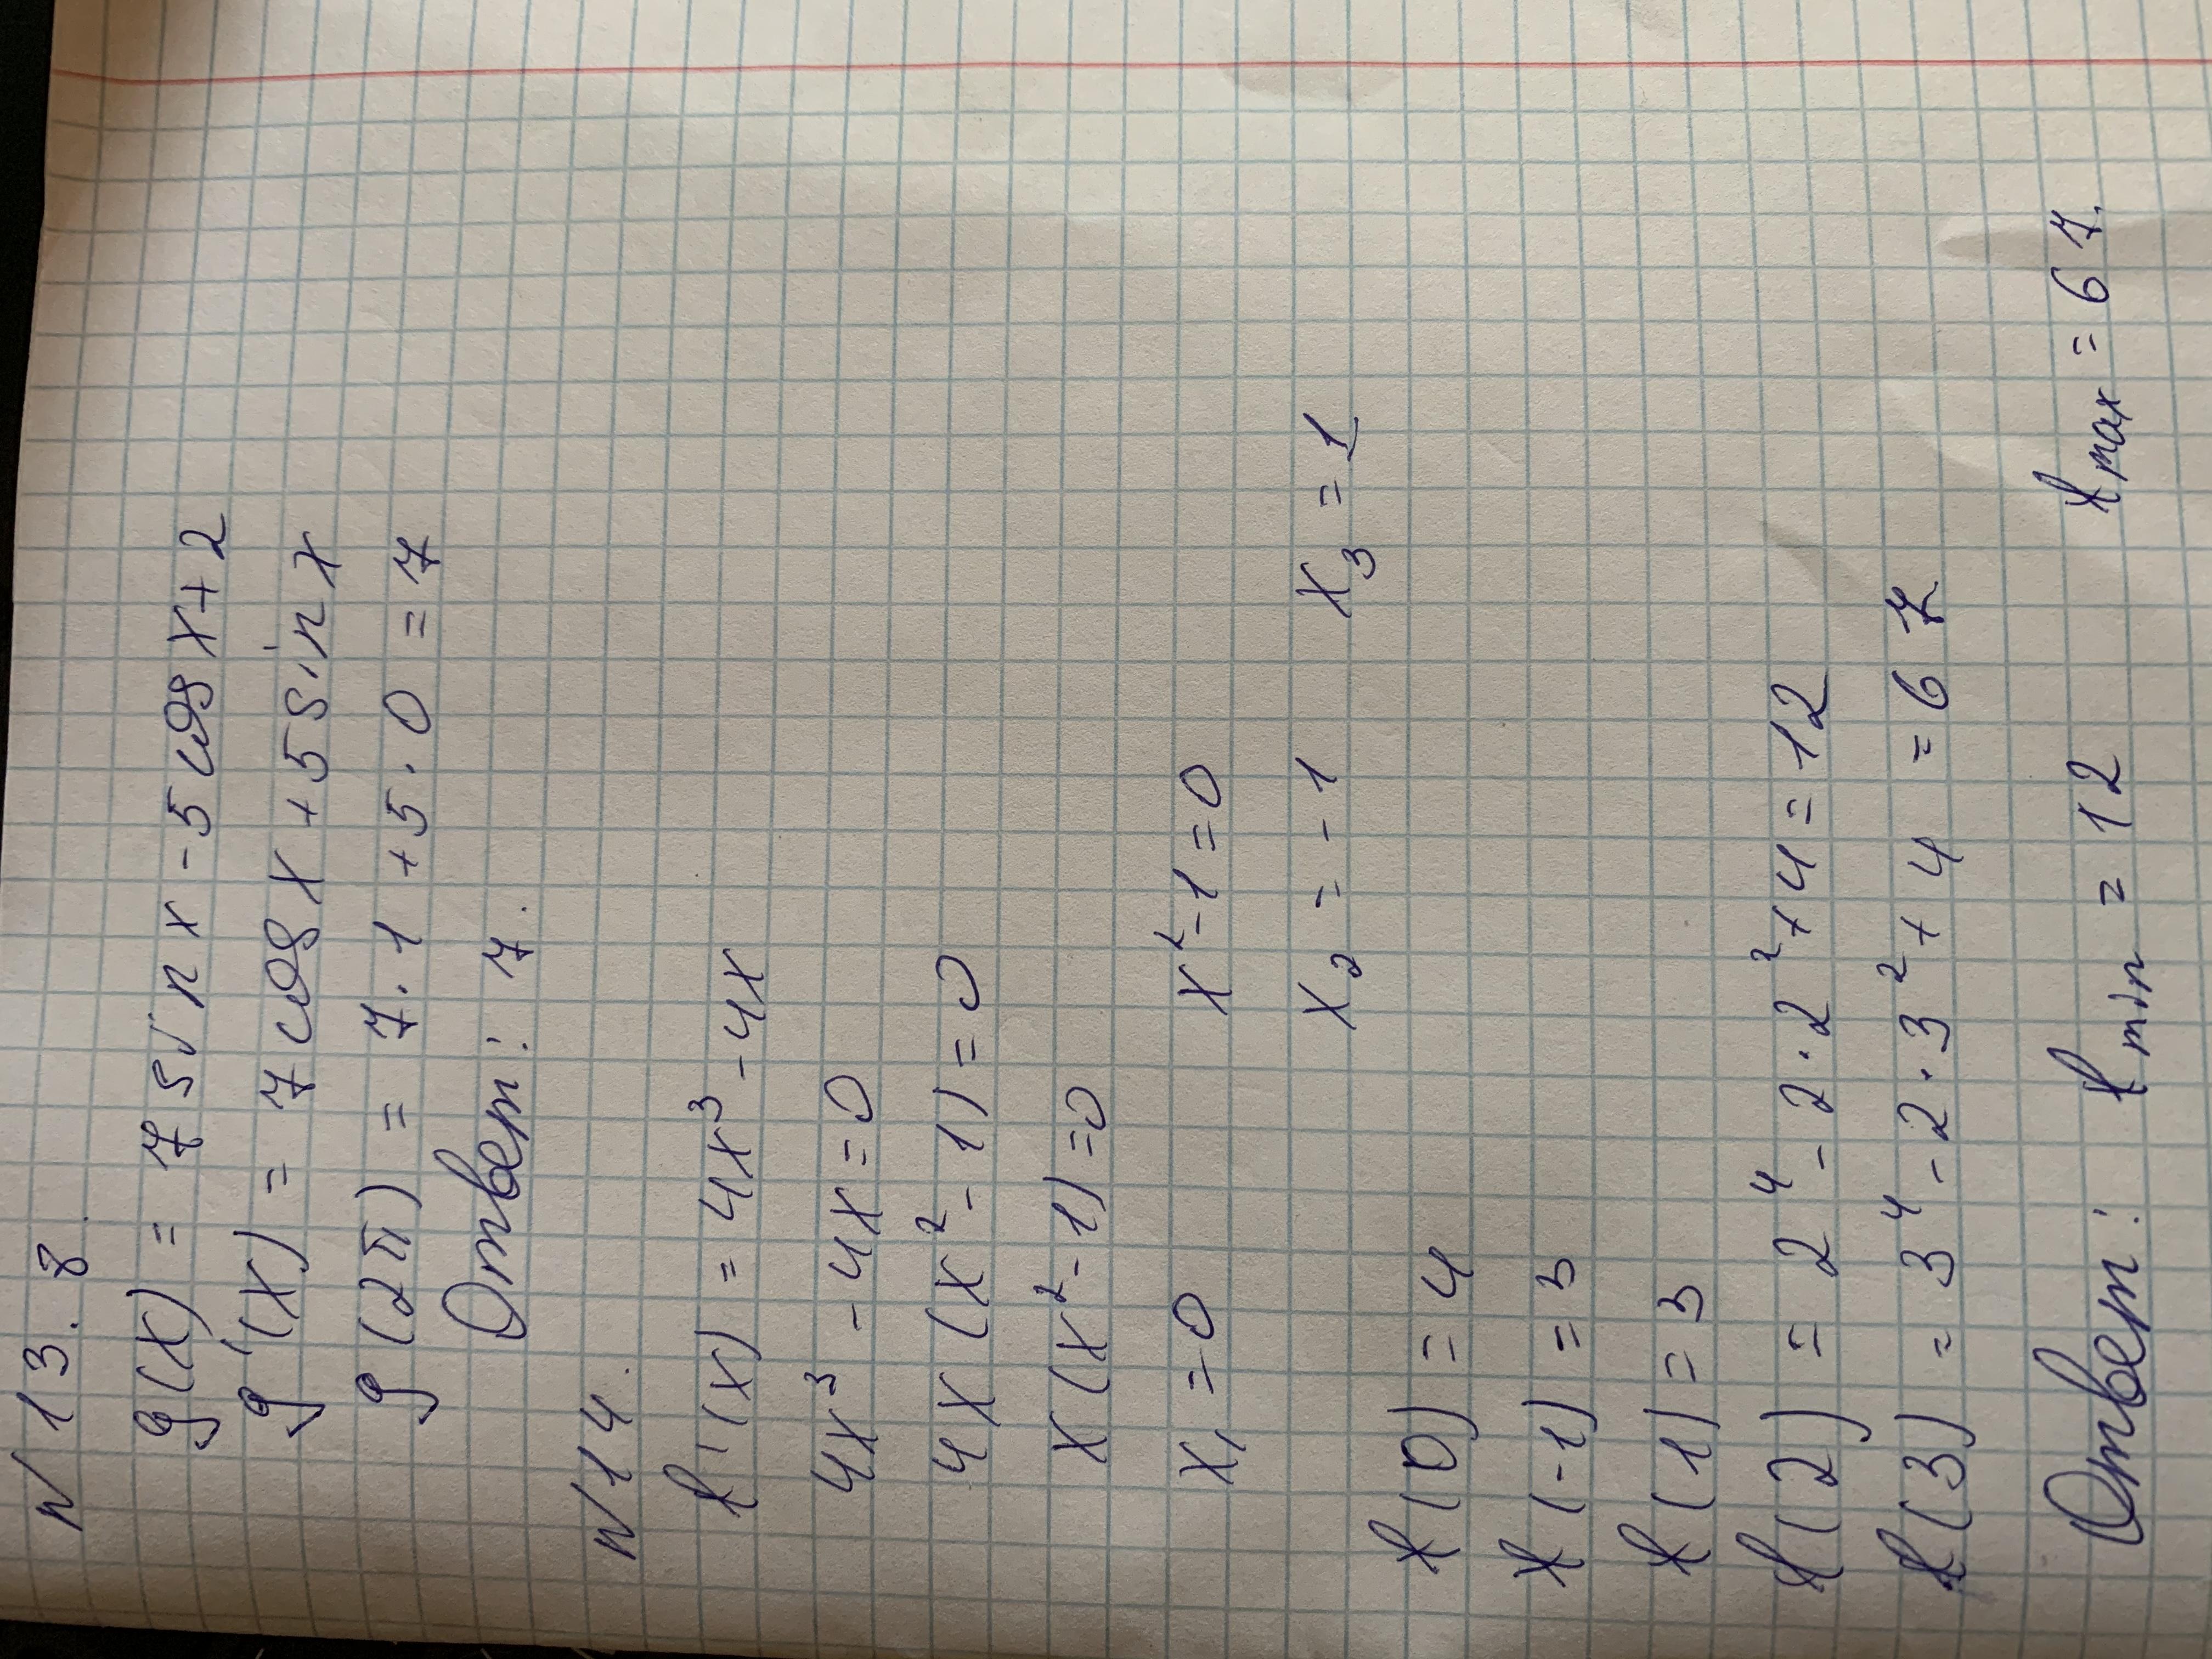 N 13. 8.
g(x) = 7 sin x - 5 cos x + 2
g'(x) = 7 cos x + 5 sin x
g(2π) = 7 · 1 + 5 · 0 = 7
Ответ: 7.
N 14.
f'(x) = 4x³ - 4x
4x³ - 4x = 0
4x(x² - 1) = 0
x(x² - 1) = 0
x₁ = 0 x² - 1 = 0
x₂ = - 1 x₃ = 1
f(0) = 4
f(-1) = 3
f(1) = 3
f(2) = 2⁴ - 2 · 2² + 4 = 12
f(3) = 3⁴ - 2 · 3² + 4 = 67
Ответ: f min = 12 f max = 67.